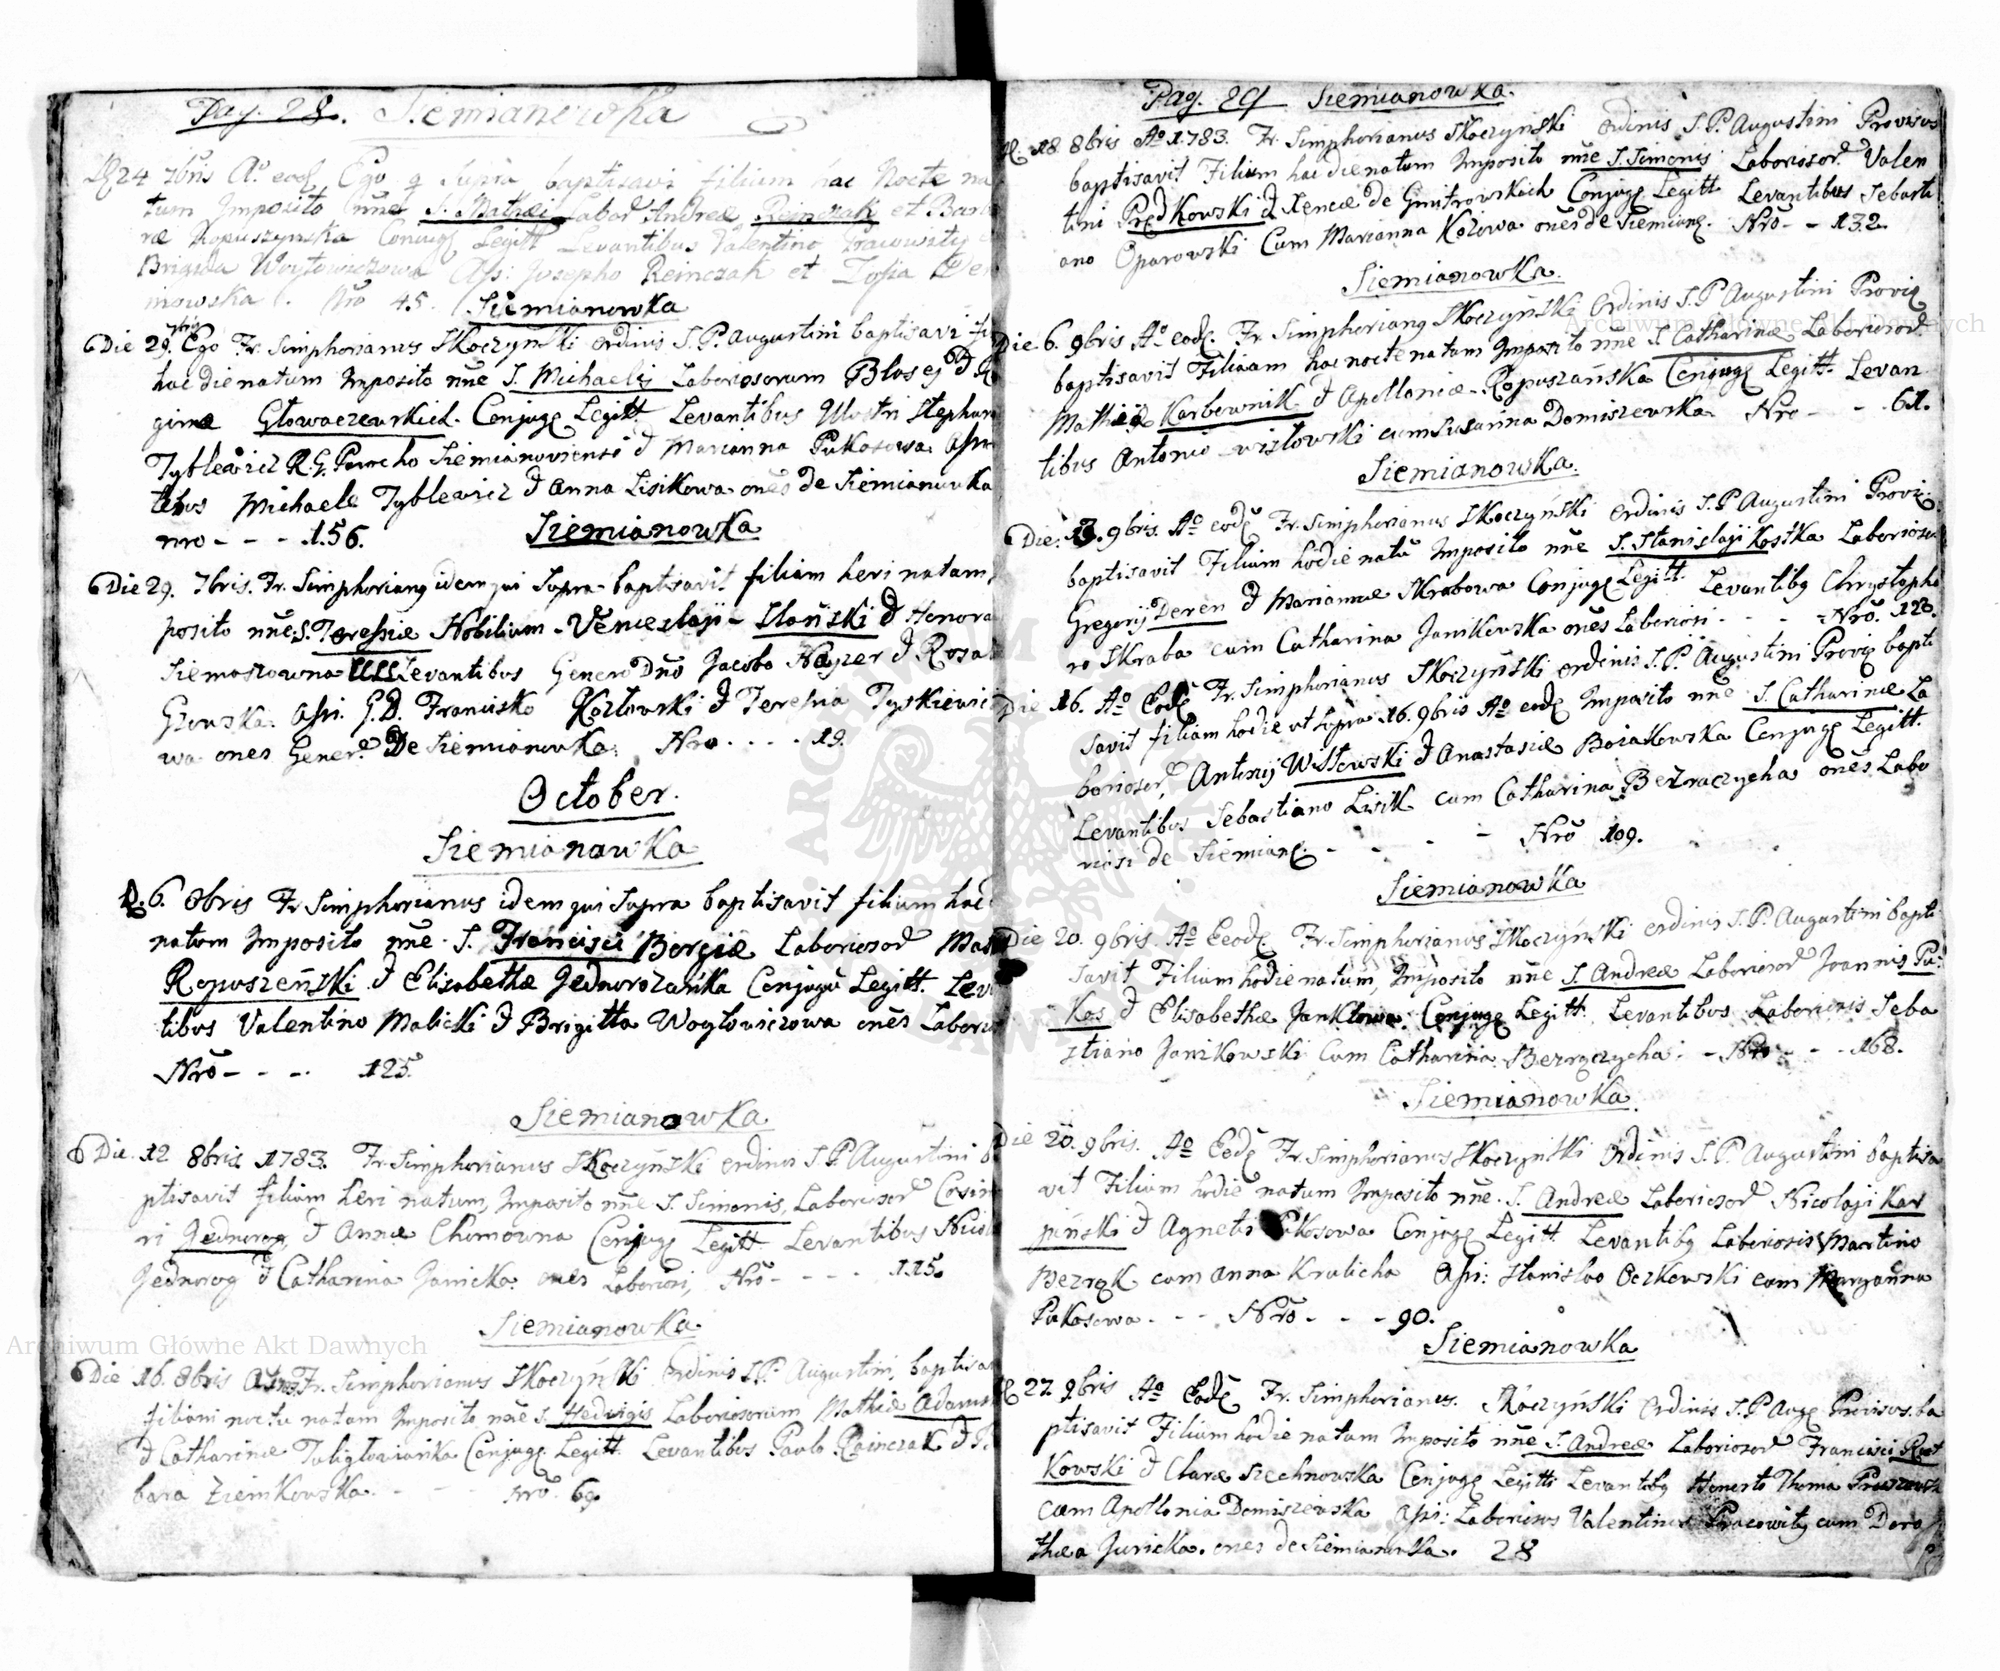 Pag. 28. Siemianowka
D 24 7bris A° eod. Ego q supra baptisavi filium hac Nocte na
tum Imposito nne S. Mathæi Labor Andreæ Reinczak et Barba
ræ Ropuszynska Conjug Legitt Levantibus Valentino Pracowity
Brigida Woytowiczowa Assi: Josepho Reinczak et Zofia
mowska. Nro 45.
Siemianowka
Die 29. 7bris Ego Fr. Simphorianus Skoczyński Ordinis S. P. Augustini baptisavi fi
hac die natum Imposito nne S. Michaelis Laboriosorum Blasej & Re
ginæ Głowaczewskich Conjug Legitt. Levantibus Illustri Stephano
Tyblewicz R. G. Parocho Siemianoviensi & Marianna Pukosowa Assis
tibus Michaele Tyblewicz & Anna Lisikowa ones de Siemianowka
nro - - - 156.
Siemianowka
Die 29. 7bris. Fr. Simphorianq idem qui Supra baptisavit filiam heri natam,
posito nne S. Teresiæ Nobilium - Venceslaji - Słański & Honora
Siemaszowna LLSS Levantibus Genero Dno Jacobo Nayzer & Rosa
Głowska. Assi. G. D. Francisko Kozłowski & Teresia Tyskiewic
wa ones Gener. De Siemianowka. Nro. . . . 19.
October.
Siemianowka
D. 6. 8bris Fr Simphorianus idem qui supra baptisavit filium hac
natum Imposito nne. S. Francisci Borgiæ Laboriosor Mat
Ropuszeński & Elisabethæ Jednorożańka Conjugu Legitt. Leva
tibus Valentino Malicki & Brigitta Woytowiczowa ones Laborio
Nro - - - - 125.
Siemianowka
Die. 12 8bris 1783. Fr Simphorianus Skoczyński ordinis S. P. Augustini b
ptisavit filium heri natum, Imposito nne S. Simonis, Laboriosor Casim
ri Jednorog, & Annæ Chomowna Conjug Legitt. Levantibus Nico
Jednorog & Catharina Janicka ones Laboriosi, Nro - - - - 115.
Siemianowka
Die 16. 8bris Fr. Simphorianus Skoczyński Ordinis S. P. Augustini, baptisa
filiam noctu natam Imposito nne S. Hedvigis Laboriosorum Mathiæ Adams
& Catharinæ Tuligłowianka Conjug. Legitt. Levantibus Paulo Rainczak &
bara Ziemkowska. - - - nro. 69.
Pag. 29 Siemianowka.
D. 18 8bris A° 1783. Fr. Simphorianus Skoczyński Ordinis S. P. Augustini Provisus
baptisavit Filium hac die natum Imposito nne S. Simonis Laboriosor Valen
tini Prędkowski & Xeniæ de Gmitrowskich Conjug Legitt Levantibus Sebasti
ano Oparowski Cum Marianna Kozowa ones de Siemianq. Nro - - 132.
Siemianowka.
Die. 6. 9bris A° eod. Fr. Simphorianq Skoczyński Ordinis S. P Augustini Proviq
baptisavit Filiaam hac nocte natam Imposito nne S Catharinæ Laboriosor
Mathiæ Karbownik & Apolloniæ - Ropuszańska Conjug Legitt. Levan
tibus Antonio Wisłowski cum Susanna Domiszewska. Nro - - - 61.
Siemianowka.
Die. 13. 9bris. A° eod Fr. Simphorianus Skoczyński Ordinis S. P Augustini Proviq.
baptisavit Filium hodie natu Imposito nne S. Stanislaji Kostka Laborioso
Gregorij Deren & Mariannæ Skrabowa Conjug Legitt. Levantibq Chrystopho
ro Skraba cum Catharina Janikowska ones Laboriosi - - - Nro. 128.
Die 16. A° Eod Fr. Simphorianus Skoczyński Ordinis S. P. Augustini Proviq bapti
savit filiam hodie ut supra 16. 9bris A° eod Imposito nne S. Catharinæ La
boriosor, Antonij Wisłowski & Anastasiæ Borakowska Conjug Legitt.
Levantibus Sebastiano Lisik cum Catharina Bezraczycha ones Labo
riosi de Siemianq. - - - - - Nro 109.
Siemianowka
Die 20. 9bris. A° Eeod. Fr. Simphorianus Skoczyński ordinis S. P. Augustini bapti
savit Filium hodie natum, Imposito nne S. Andreæ Laboriosor Joannis Pu
kos & Elisabethæ Jankowa. Conjug Legitt. Levantibus Laboriosis Seba
stiano Janikowski Cum Catharina Bezraczycha: - Nro - - - 168.
Siemianowka.
Die 20. 9bris. A° Eod Fr. Simphorianus Skoczyński Ordinis S. P. Augustini baptisa
vit Filium hodie natum Imposito nne. S. Andreæ Laboriosor Nicolaji Kar
piński & Agnetis Pukosowa Conjug Legitt Levantibq Laboriosis Martino
Bezrąk cum Anna Krulicha Assi: Stanislao Oczkowski cum Maryanna
Pukosowa - - - Nro - - - 90.
Siemianowka
D 27. 9bris A° Eod Fr. Simphorianus. Skoczyński Ordinis S. P Augq Provisus. ba
ptisavit Filium hodie natum Imposito nne S. Andreæ Laboriosor Francisci Rut
kowski & Claræ Szechnowska Conjug Legitti Levantibq Honesto Thoma
cum Apollonia Domiszewska Assi: Laboriosus Valentinus Pracowity cum Doro
thæa Juricka. ones de Siemianowka. 28